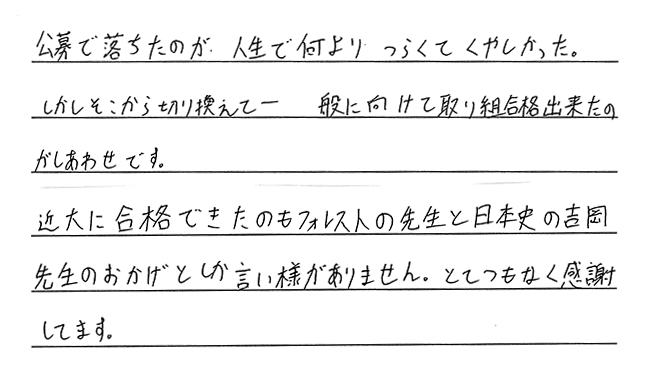 公募で落ちたのが、人生で何より つらくてくやしかった。
しかしそこから切り換えて一 般に向けて取り組合格出来たの
がしあわせです。
近大に合格できたのもフォレストの先生と日本史の吉岡
先生のおかげとしか言い様がありません。とてつもなく感謝
してます。